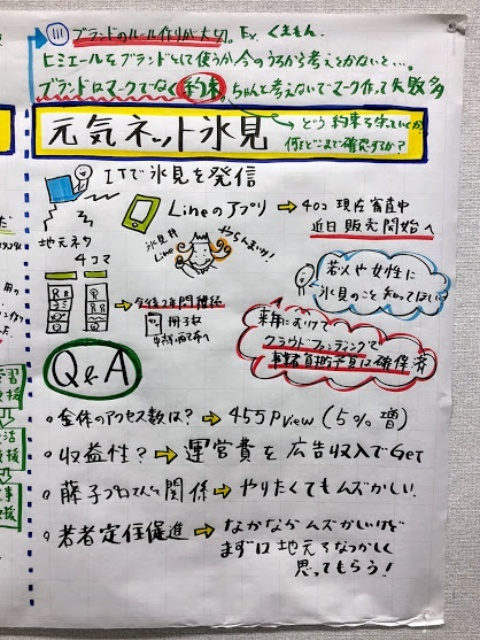 ③ ブランドのルール作りが大切。Ex. くまもん
ヒミエールもブランドとして使うか今のうちから考えとかないと…。
ブランドはマークでなく約束 ちゃんと考えないでマーク作って失敗多
元気ネット氷見
どう約束を守っていくか
何をどこまで確認するか?
ITで氷見を発信
Lineのアプリ ⇒ 40コ 現在審査中
近日販売開始へ
地元ネタ
4コマ
氷見弁
Line
やらんまいけ!
若い人や女性に
氷見のこと知ってほしい
冊子
来年にむけて
クラウドファンディングで
確保済
Q&A
全体のアクセス数は? ⇒ 45万PView (5%増)
収益性? ⇒ 運営費を広告収入でGet
藤子プロさんと関係 ⇒ やりたくてもムズかしい
若者定住促進 ⇒ なかなかムズかしいけど
まずは地元をなつかしく
思ってもらう!